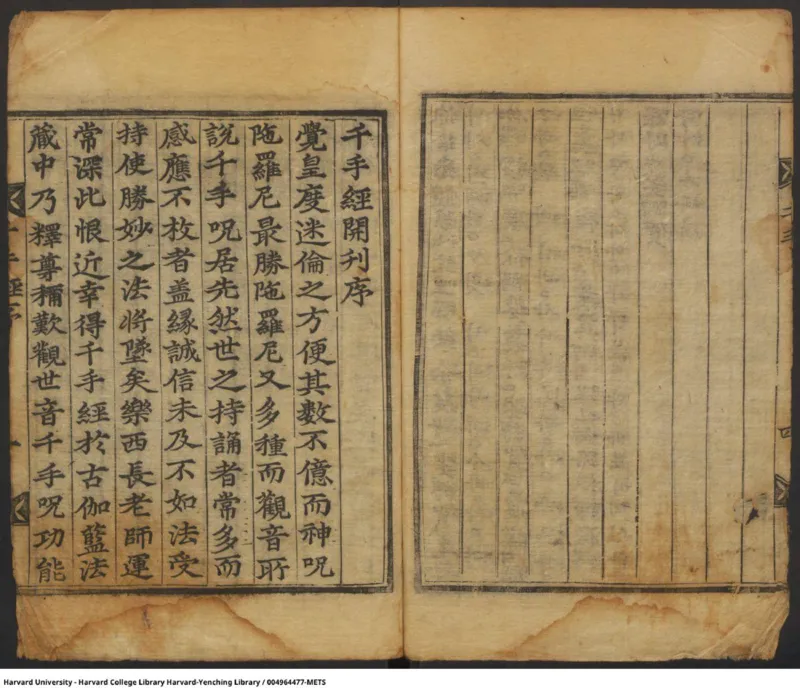 千手經開刋序
覺皇度迷倫之方便其數不億而神呪
陁羅尼最勝陁羅尼又多種而觀音所
說千手呪居先然世之持誦者常多而
感應不枚者盖緣誠信未及不如法受
持使勝妙之法將墜矣樂西長老師運
常深此恨近幸得千手經於古伽藍法
藏中乃釋尊稱歎觀世音千手呪功能
千手經序 一
四
Harvard University - Harvard College Library Harvard-Yenching Library / 004964477-METS